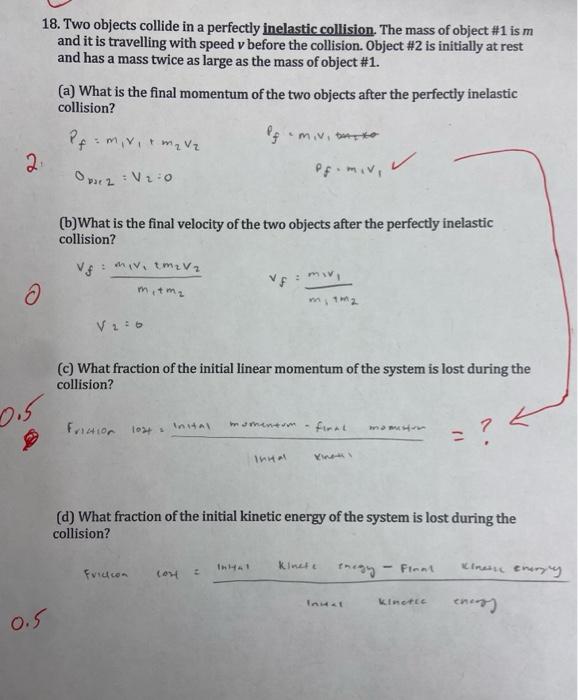 18. Two objects collide in a perfectly inelastic collision. The mass of object #1 is m
and it is travelling with speed v before the collision. Object #2 is initially at rest
and has a mass twice as large as the mass of object #1.
(a) What is the final momentum of the two objects after the perfectly inelastic
collision?
Pf = m1v1 + m2v2
Pf = m1v1
2
v2 = 0
Pf = m1v1 ✓
(b)What is the final velocity of the two objects after the perfectly inelastic
collision?
vf = m1v1 + m2v2
m1+m2
vf = m1v1
m1+m2
0
v2=0
(c) What fraction of the initial linear momentum of the system is lost during the
collision?
0.5
lost = Inital momentum - final momentum
Inital
= ?
(d) What fraction of the initial kinetic energy of the system is lost during the
collision?
lost = Inital kinetic energy - Final kinetic energy
Inital kinetic energy
0.5